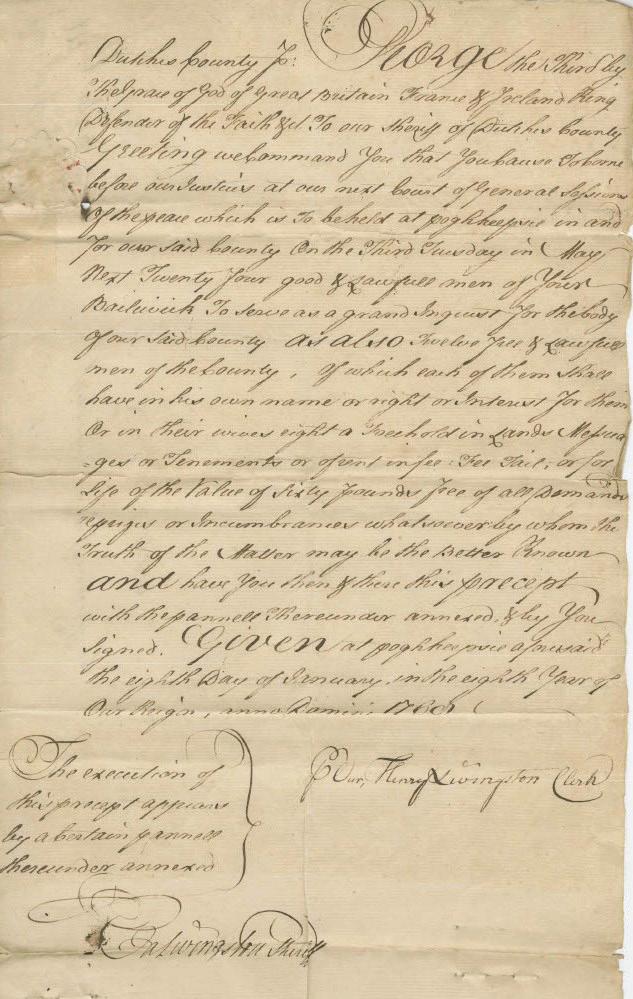 Dutchis County Ss: George the Third by
The Grace of God of Great Britain France & Ireland King
Defender of the Faith &c To our Sheriff of Dutchis County
Greeting we Command You that You Cause To Come
before our Justices at our next Court of General Sessions
of the peace which is To be held at poghkeepsie in and
for our said County On the Third Tuesday in May
Next Twenty four good & Lawfull men of Your
Bailiwick To serve as a grand Inquest for the body
of our said County as also Twelve free & Lawfull
men of the County, of which each of them shall
have in his own name or right or Interest for them
Or in their wives right a Freehold in Lands Messua
=ges or Tenements or of rent in fee: Fee Tail, or for
Life of the Value of Sixty pounds free of all Demands
reprizes or Incumbrances whatsoever by whom the
Truth of the Matter may be the Better Known
and have You then & there this precept
with the pannell Thereunder annexed, & by You
signed. Given at poghkeepsie aforesaid
the eighth Day of January, in the eighth Year of
Our Reign, anno Domini, 1768
The execution of
this precept appears
by a Certain pannell
thereunder annexed
P Cur, Henry Livingston Clerk
Livingston Sheriff